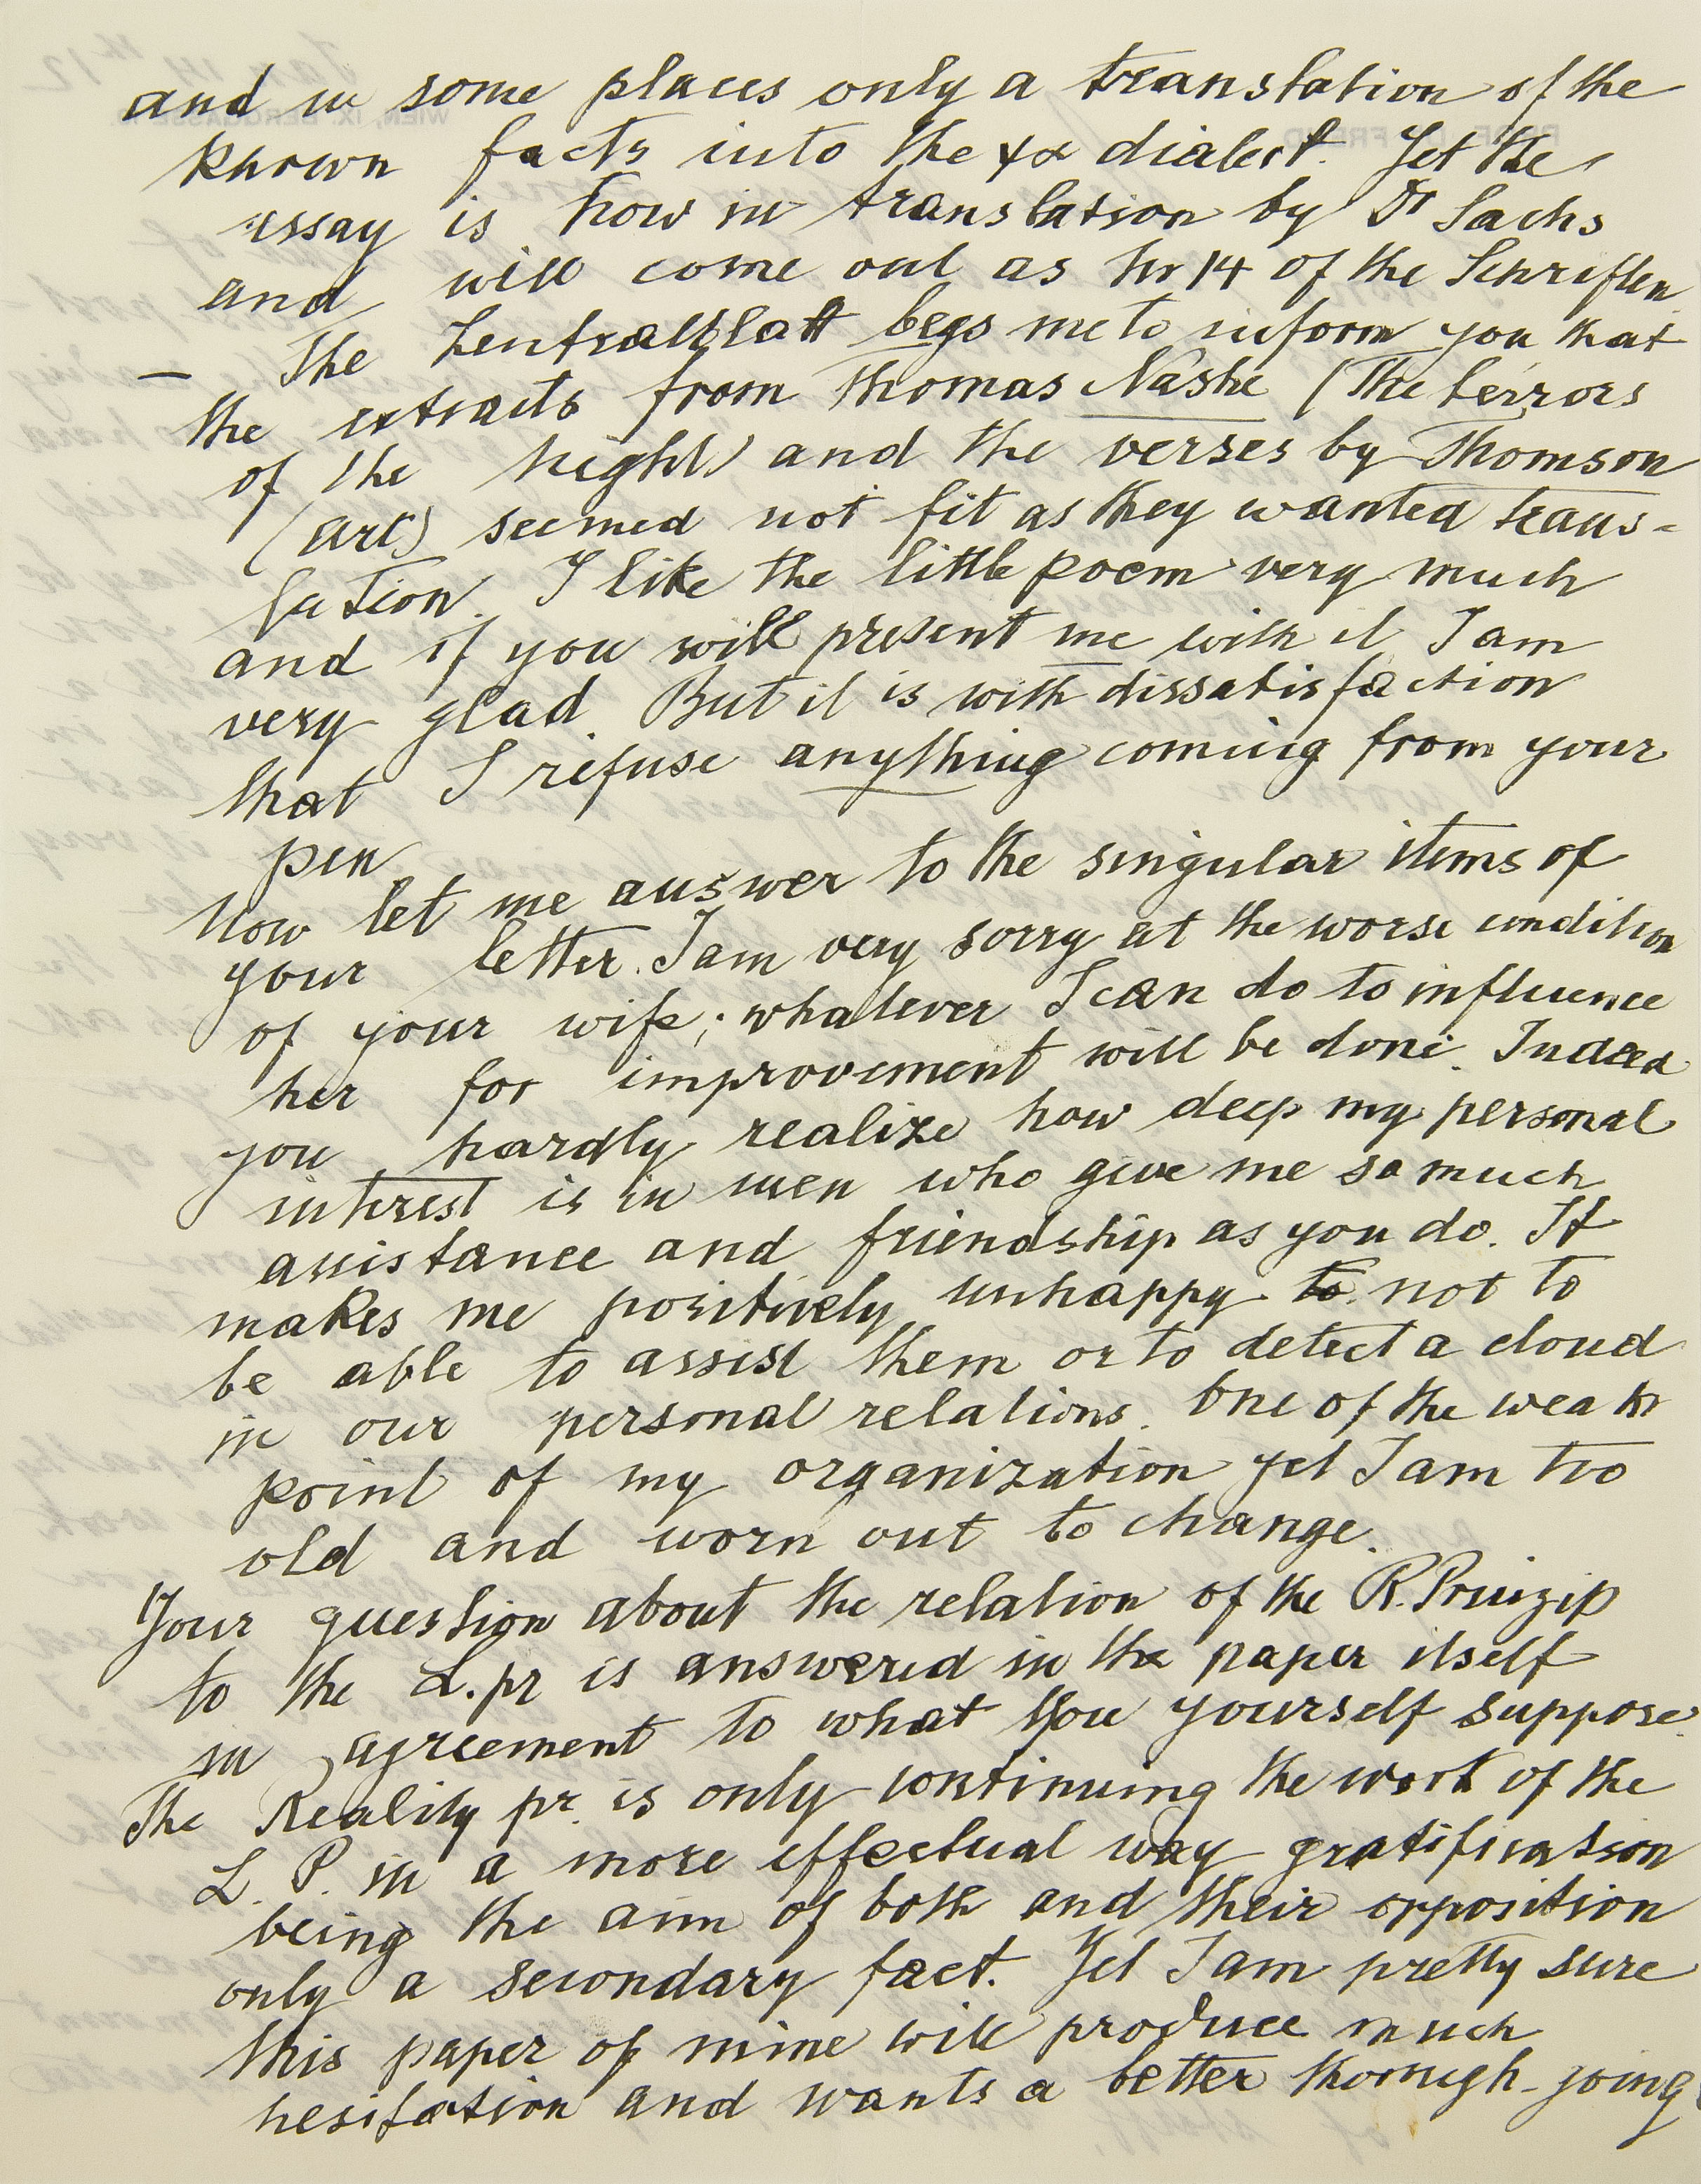 and in some places only a translation of the
known facts into the ψα dialect. Yet the
essay is now in translation by Dr Sachs
and will come out as Nr 14 of the Schriften
— The Zentralblatt begs me to inform you that
the extracts from Thomas Nashe (The terrors
of the night) and the verses by Thomson
(art) seemed not fit as they wanted trans-
lation. I like the little poem very much
and if you will present me with it I am
very glad. But it is with dissatisfaction
that I refuse anything coming from your
pen
Now let me answer to the singular items of
your letter. I am very sorry at the worse condition
of your wife; whatever I can do to influence
her for improvement will be done. Indeed
you hardly realize how deep my personal
interest is in men who give me so much
assistance and friendship as you do. It
makes me positively unhappy to not to
be able to assist them or to detect a cloud
in our personal relations. One of the weak
point of my organization yet I am too
old and worn out to change.
Your question about the relation of the R. Prinzip
to the L. pr is answered in the paper itself
in agreement to what you yourself suppose.
The Reality pr. is only continuing the work of the
L. P. in a more effectual way gratification
being the aim of both and their opposition
only a secondary fact. Yet I am pretty sure
this paper of mine will produce much
hesitation and wants a better thorough-going